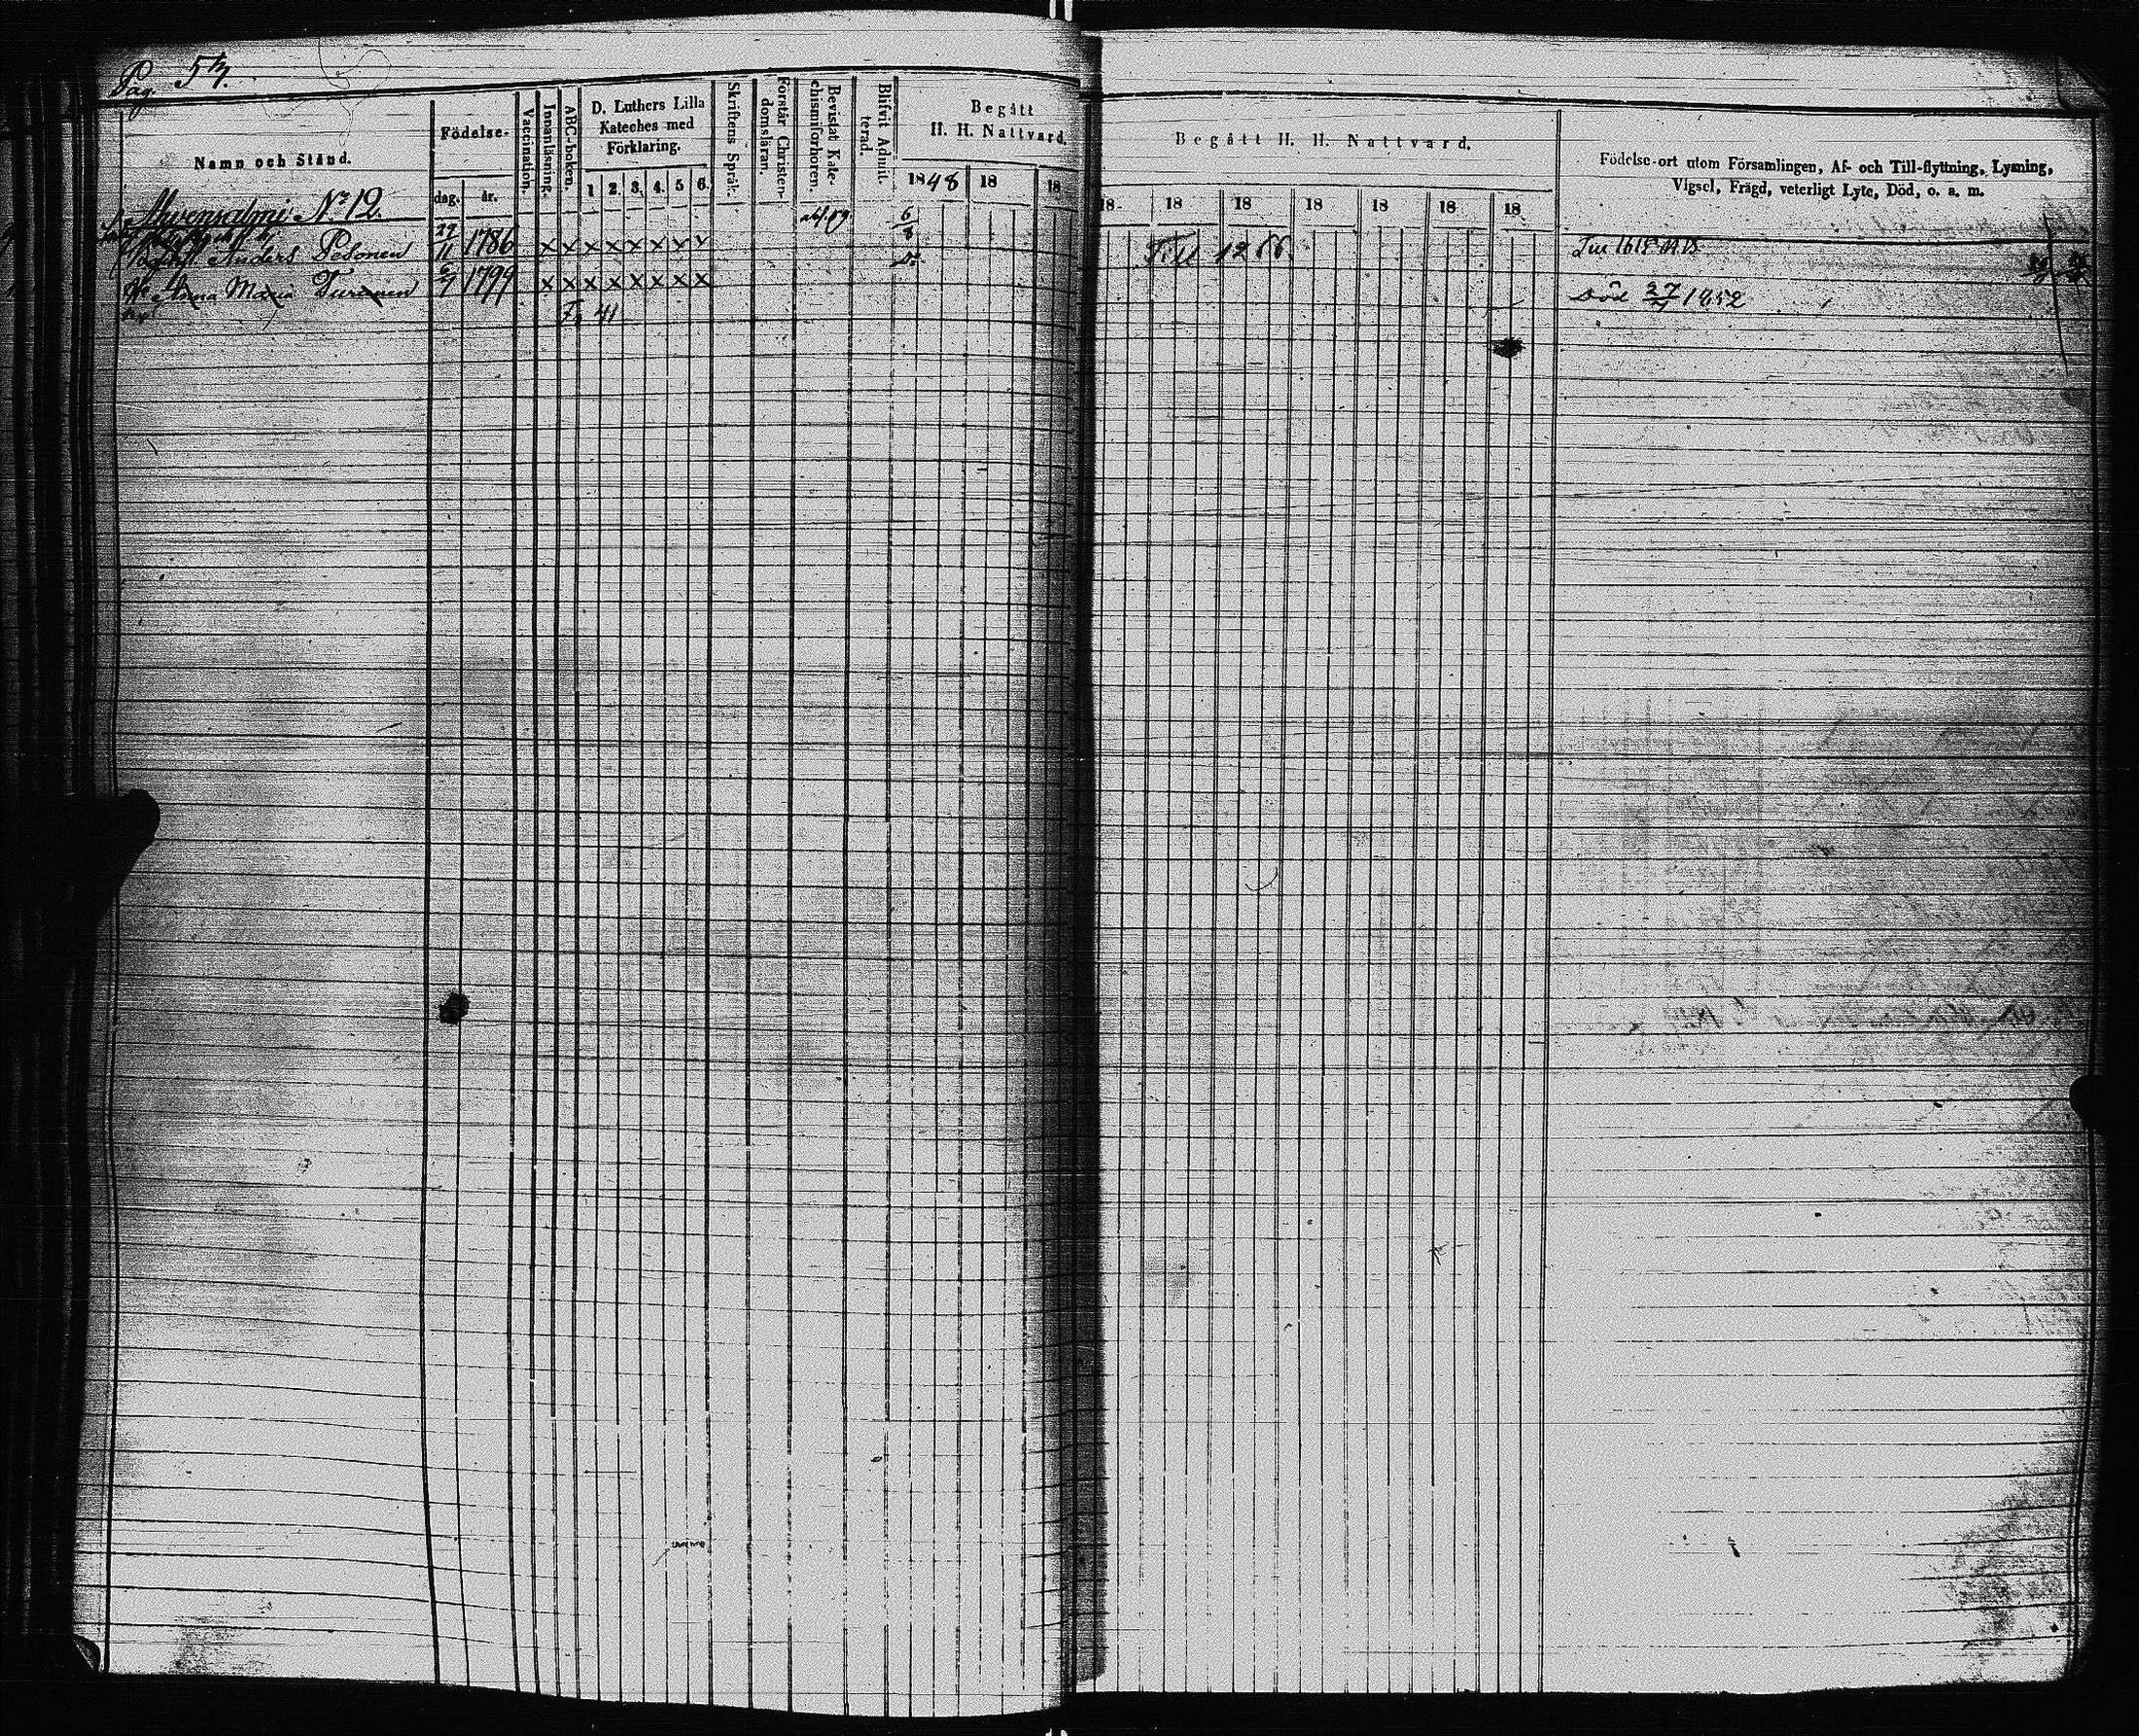 Pag. 57.
Namn och Stånd.
Födelse-
dag. år.
Vaccination.
Innanläsning.
ABC-boken.
D. Luthers Lilla
Kateches med
Förklaring.
1 2. 3. 4. 5 6.
Skriftens Språk.
Förstår Christen-
domsläran.
Bevistat Kate-
chismiförhören.
Blifvit Admit-
terad.
Begått
H. H. Nattvard.
1848 18 18
Begått H. H. Nattvard.
18 18 18 18 18 18 18
Födelse-ort utom Församlingen, Af- och Till-flyttning, Lysning,
Vigsel, Frägd, veterligt Lyte, Död, o. a. m.
Ahvensalmi No 12.
Anders Pesonen 27/11 1786 x x x x x x x x 6/8
Anna Maria Turunen 6/7 1799 x x x x x x x x Död 27/4 1852
41